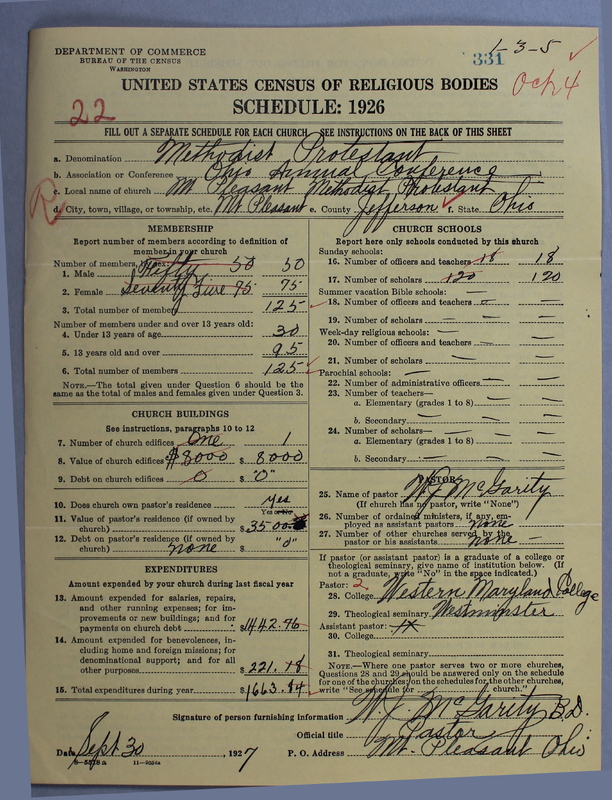 DEPARTMENT OF COMMERCE
BUREAU OF THE CENSUS
WASHINGTON
1-3-5
331
Oct 4
UNITED STATES CENSUS OF RELIGIOUS BODIES
22
SCHEDULE: 1926
FILL OUT A SEPARATE SCHEDULE FOR EACH CHURCH SEE INSTRUCTIONS ON THE BACK OF THIS SHEET
a. Denomination Methodist Protestant
b. Association or Conference Ohio Annual Conference
c. Local name of church Mt Pleasant Methodist Protestant
R
d. City, town, village, or township, etc. Mt Pleasant e. County Jefferson f. State Ohio
MEMBERSHIP
Report number of members according to definition of
member in your church
Number of members, by sex:
1. Male Fifty 50 50
2. Female Seventy Five 75 75
3. Total number of members 125
Number of members under and over 13 years old:
4. Under 13 years of age 30
5. 13 years old and over 95
6. Total number of members 125
NOTE.—The total given under Question 6 should be the
same as the total of males and females given under Question 3.
CHURCH BUILDINGS
See instructions, paragraphs 10 to 12
7. Number of church edifices One 1
8. Value of church edifices $8000 $ 8000
9. Debt on church edifices 0 $ "0"
10. Does church own pastor's residence? yes
Yes or No
11. Value of pastor's residence (if owned by
church) $ 3500
12. Debt on pastor's residence (if owned by
church) none $ "0"
EXPENDITURES
Amount expended by your church during last fiscal year
13. Amount expended for salaries, repairs,
and other running expenses; for im-
provements or new buildings; and for
payments on church debt $1442.76
14. Amount expended for benevolences, in-
cluding home and foreign missions; for
denominational support; and for all
other purposes $ 221.18
15. Total expenditures during year $1663.94
CHURCH SCHOOLS
Report here only schools conducted by this church
Sunday schools:
16. Number of officers and teachers 18 18
17. Number of scholars 120 120
Summer vacation Bible schools: —
18. Number of officers and teachers — —
19. Number of scholars — —
Week-day religious schools: —
20. Number of officers and teachers — —
21. Number of scholars — —
Parochial schools: —
22. Number of administrative officers — —
23. Number of teachers—
a. Elementary (grades 1 to 8) — —
b. Secondary — —
24. Number of scholars—
a. Elementary (grades 1 to 8) — —
b. Secondary — —
PASTOR
25. Name of pastor W J McGarity
(If church has no pastor, write "None")
26. Number of ordained ministers, if any, em-
ployed as assistant pastors none
27. Number of other churches served by the
pastor or his assistants none —
If pastor (or assistant pastor) is a graduate of a college or
theological seminary, give name of institution below. (If
not a graduate, write "No" in the space indicated.)
Pastor: 2
28. College Western Maryland College
29. Theological seminary Westminster
Assistant pastor:
30. College
31. Theological seminary
NOTE.—Where one pastor serves two or more churches,
Questions 28 and 29 should be answered only on the schedule
for one of the churches; on the schedules for the other churches,
write "See schedule for church."
Signature of person furnishing information W. J. McGarity B.D.
Official title Pastor
Date Sept 30, 1927 P. O. Address Mt. Pleasant Ohio